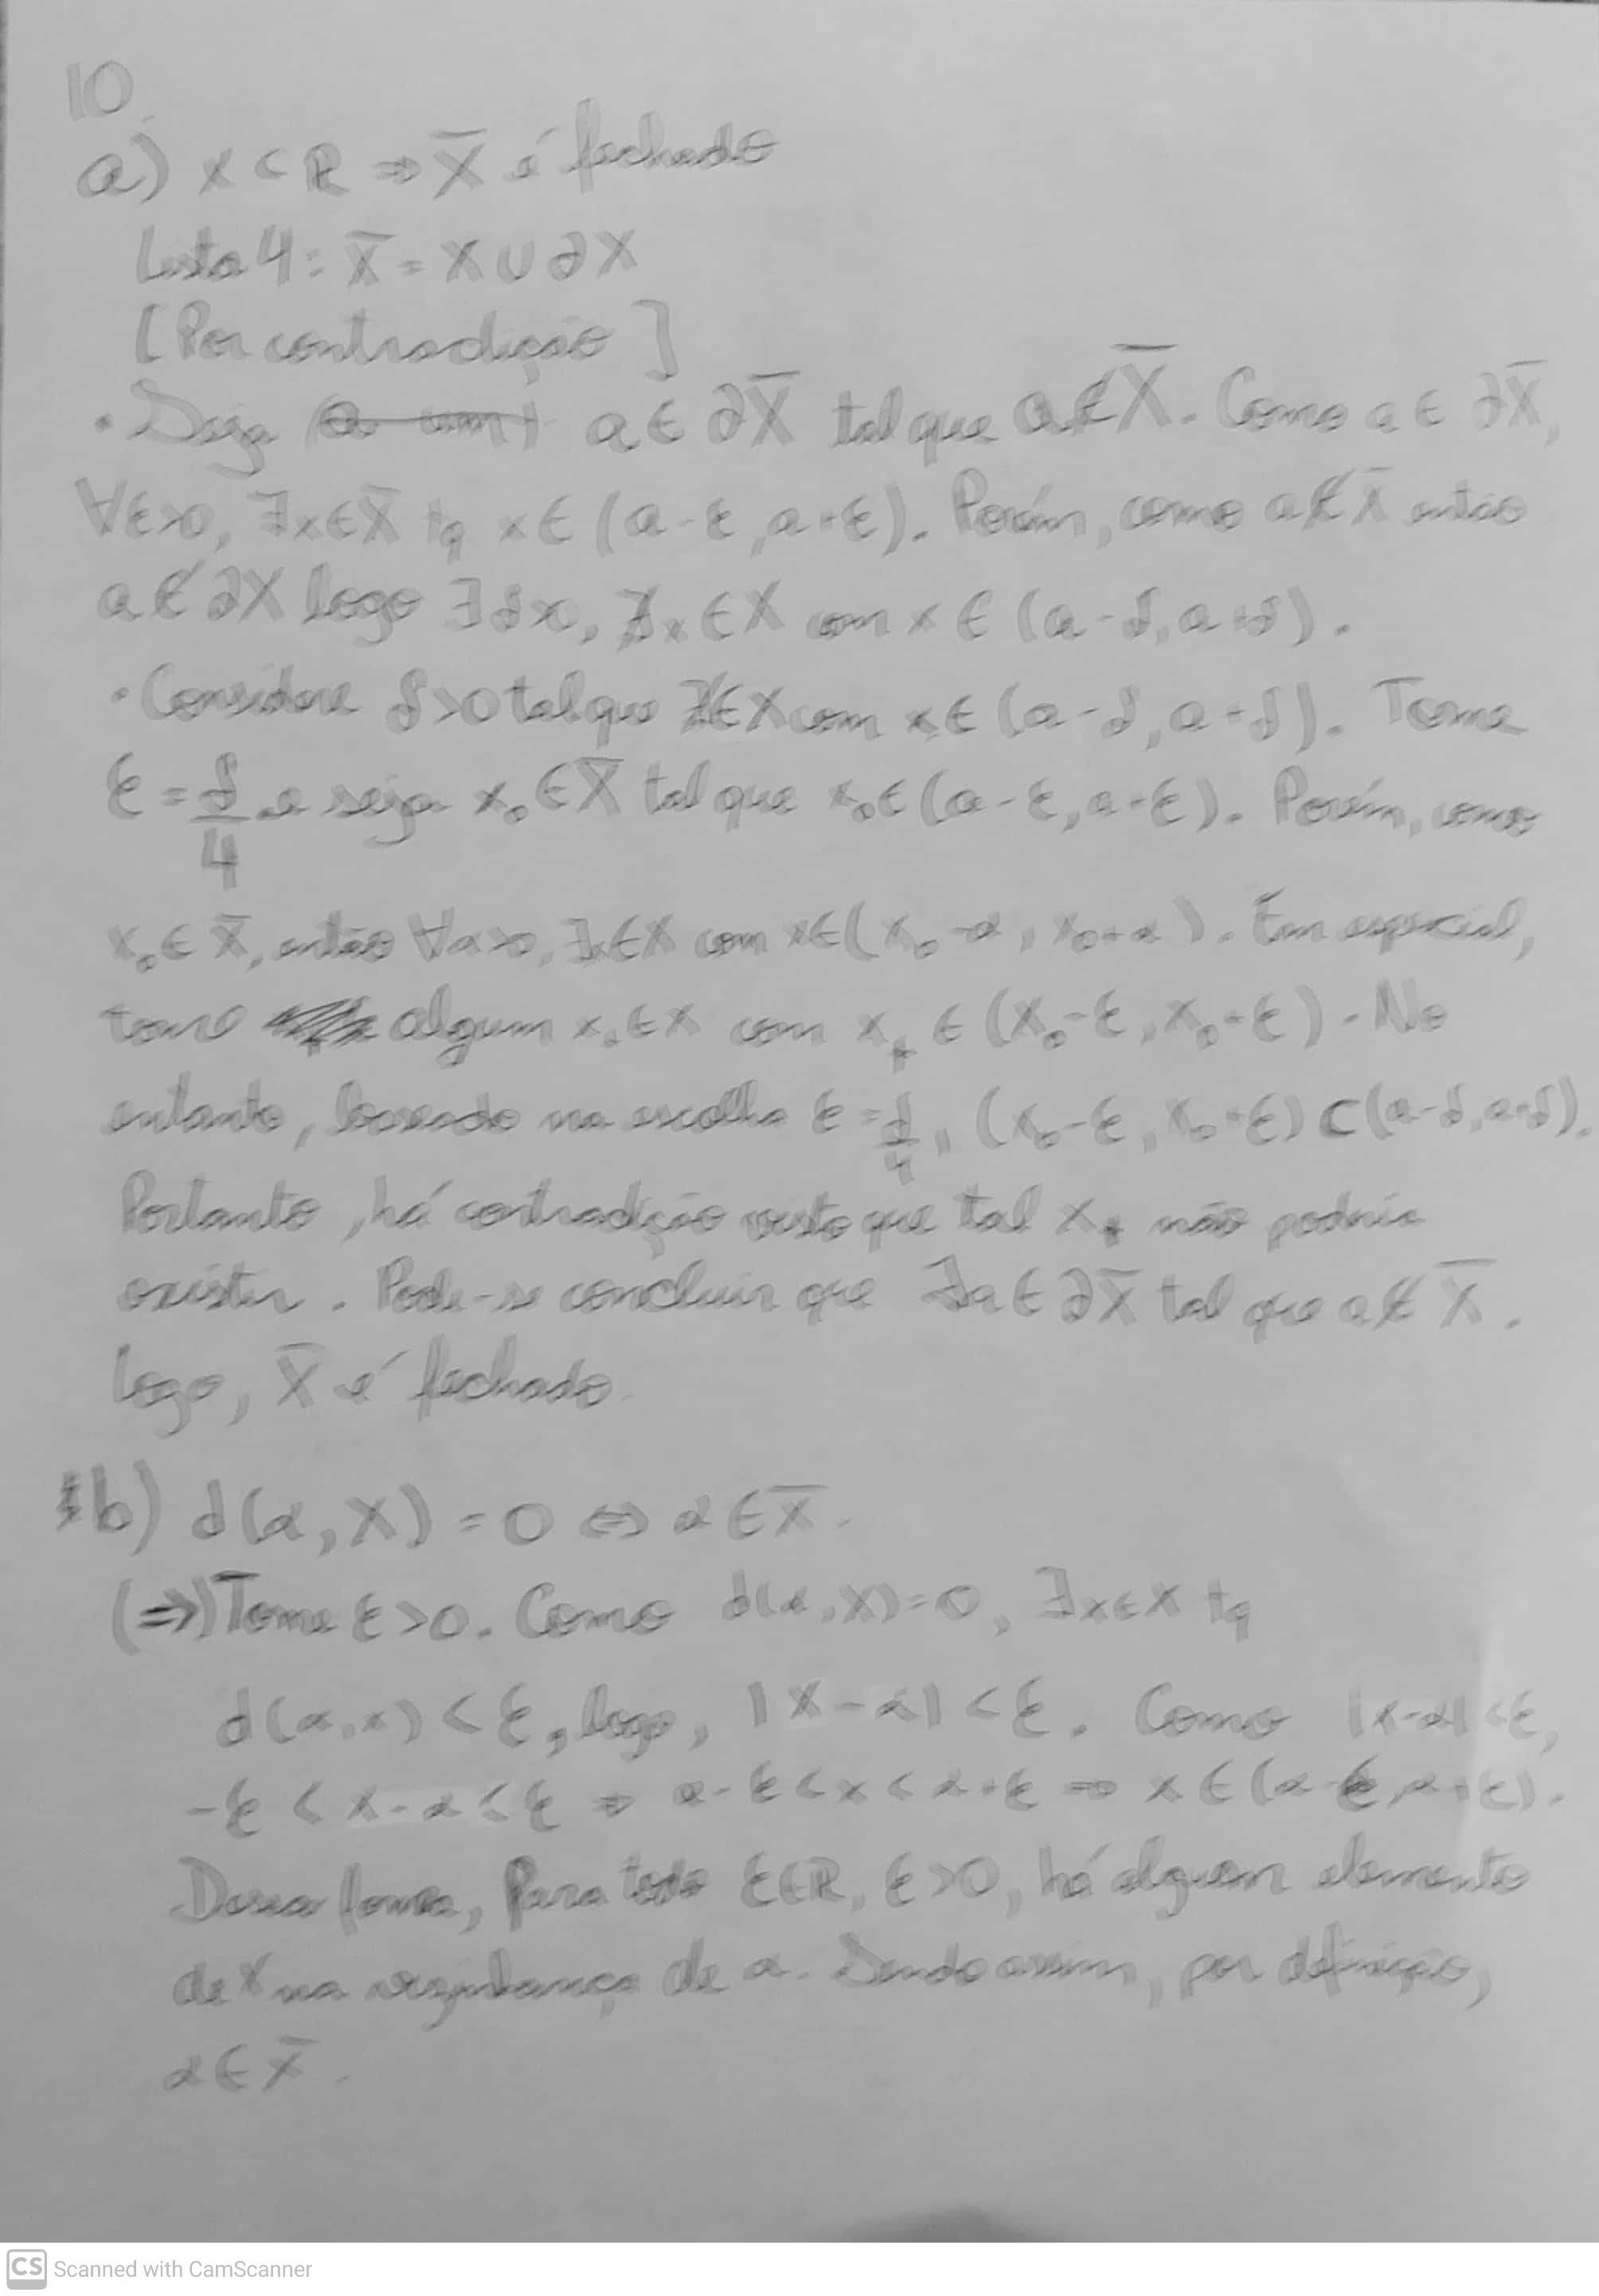 10
a) X ⊂ R ⇒ X̄ é fechado
Lista 4: X̄ = X ∪ ∂X
[Por contradição]
• Seja a um a ∈ ∂X̄ tal que a ∉ X̄. Como a ∈ ∂X̄,
∀ε>0, ∃x∈X̄ tq x ∈ (a-ε, a+ε). Porém, como a ∉ X̄ então
a ∉ ∂X logo ∃δ>0, ∄x ∈ X com x ∈ (a-δ, a+δ).
• Considere δ>0 tal que ∄x∈X com x ∈ (a-δ, a+δ). Tome
ε = δ/4 e seja x₀ ∈ X̄ tal que x₀ ∈ (a-ε, a+ε). Porém, como
x₀ ∈ X̄, então ∀α>0, ∃x∈X com x∈(x₀-α, x₀+α). Em especial,
tome algum x₊ ∈ X com x₊ ∈ (x₀-ε, x₀+ε). No
entanto, baseado na escolha ε = δ/4, (x₀-ε, x₀+ε) ⊂ (a-δ, a+δ).
Portanto, há contradição visto que tal x₊ não poderia
existir. Pode-se concluir que ∄a ∈ ∂X̄ tal que a ∉ X̄.
Logo, X̄ é fechado
b) d(α, X) = 0 ⇔ α ∈ X̄.
(⇒) Tome ε>0. Como d(α, X)=0, ∃x∈X tq
d(α, x) < ε, logo, |x-α| < ε. Como |x-α| < ε,
-ε < x-α < ε ⇒ α-ε < x < α+ε ⇒ x ∈ (α-ε, α+ε).
Dessa forma, Para todo ε∈R, ε>0, há algum elemento
de X na vizinhança de α. Sendo assim, por definição,
α ∈ X̄.
CS Scanned with CamScanner